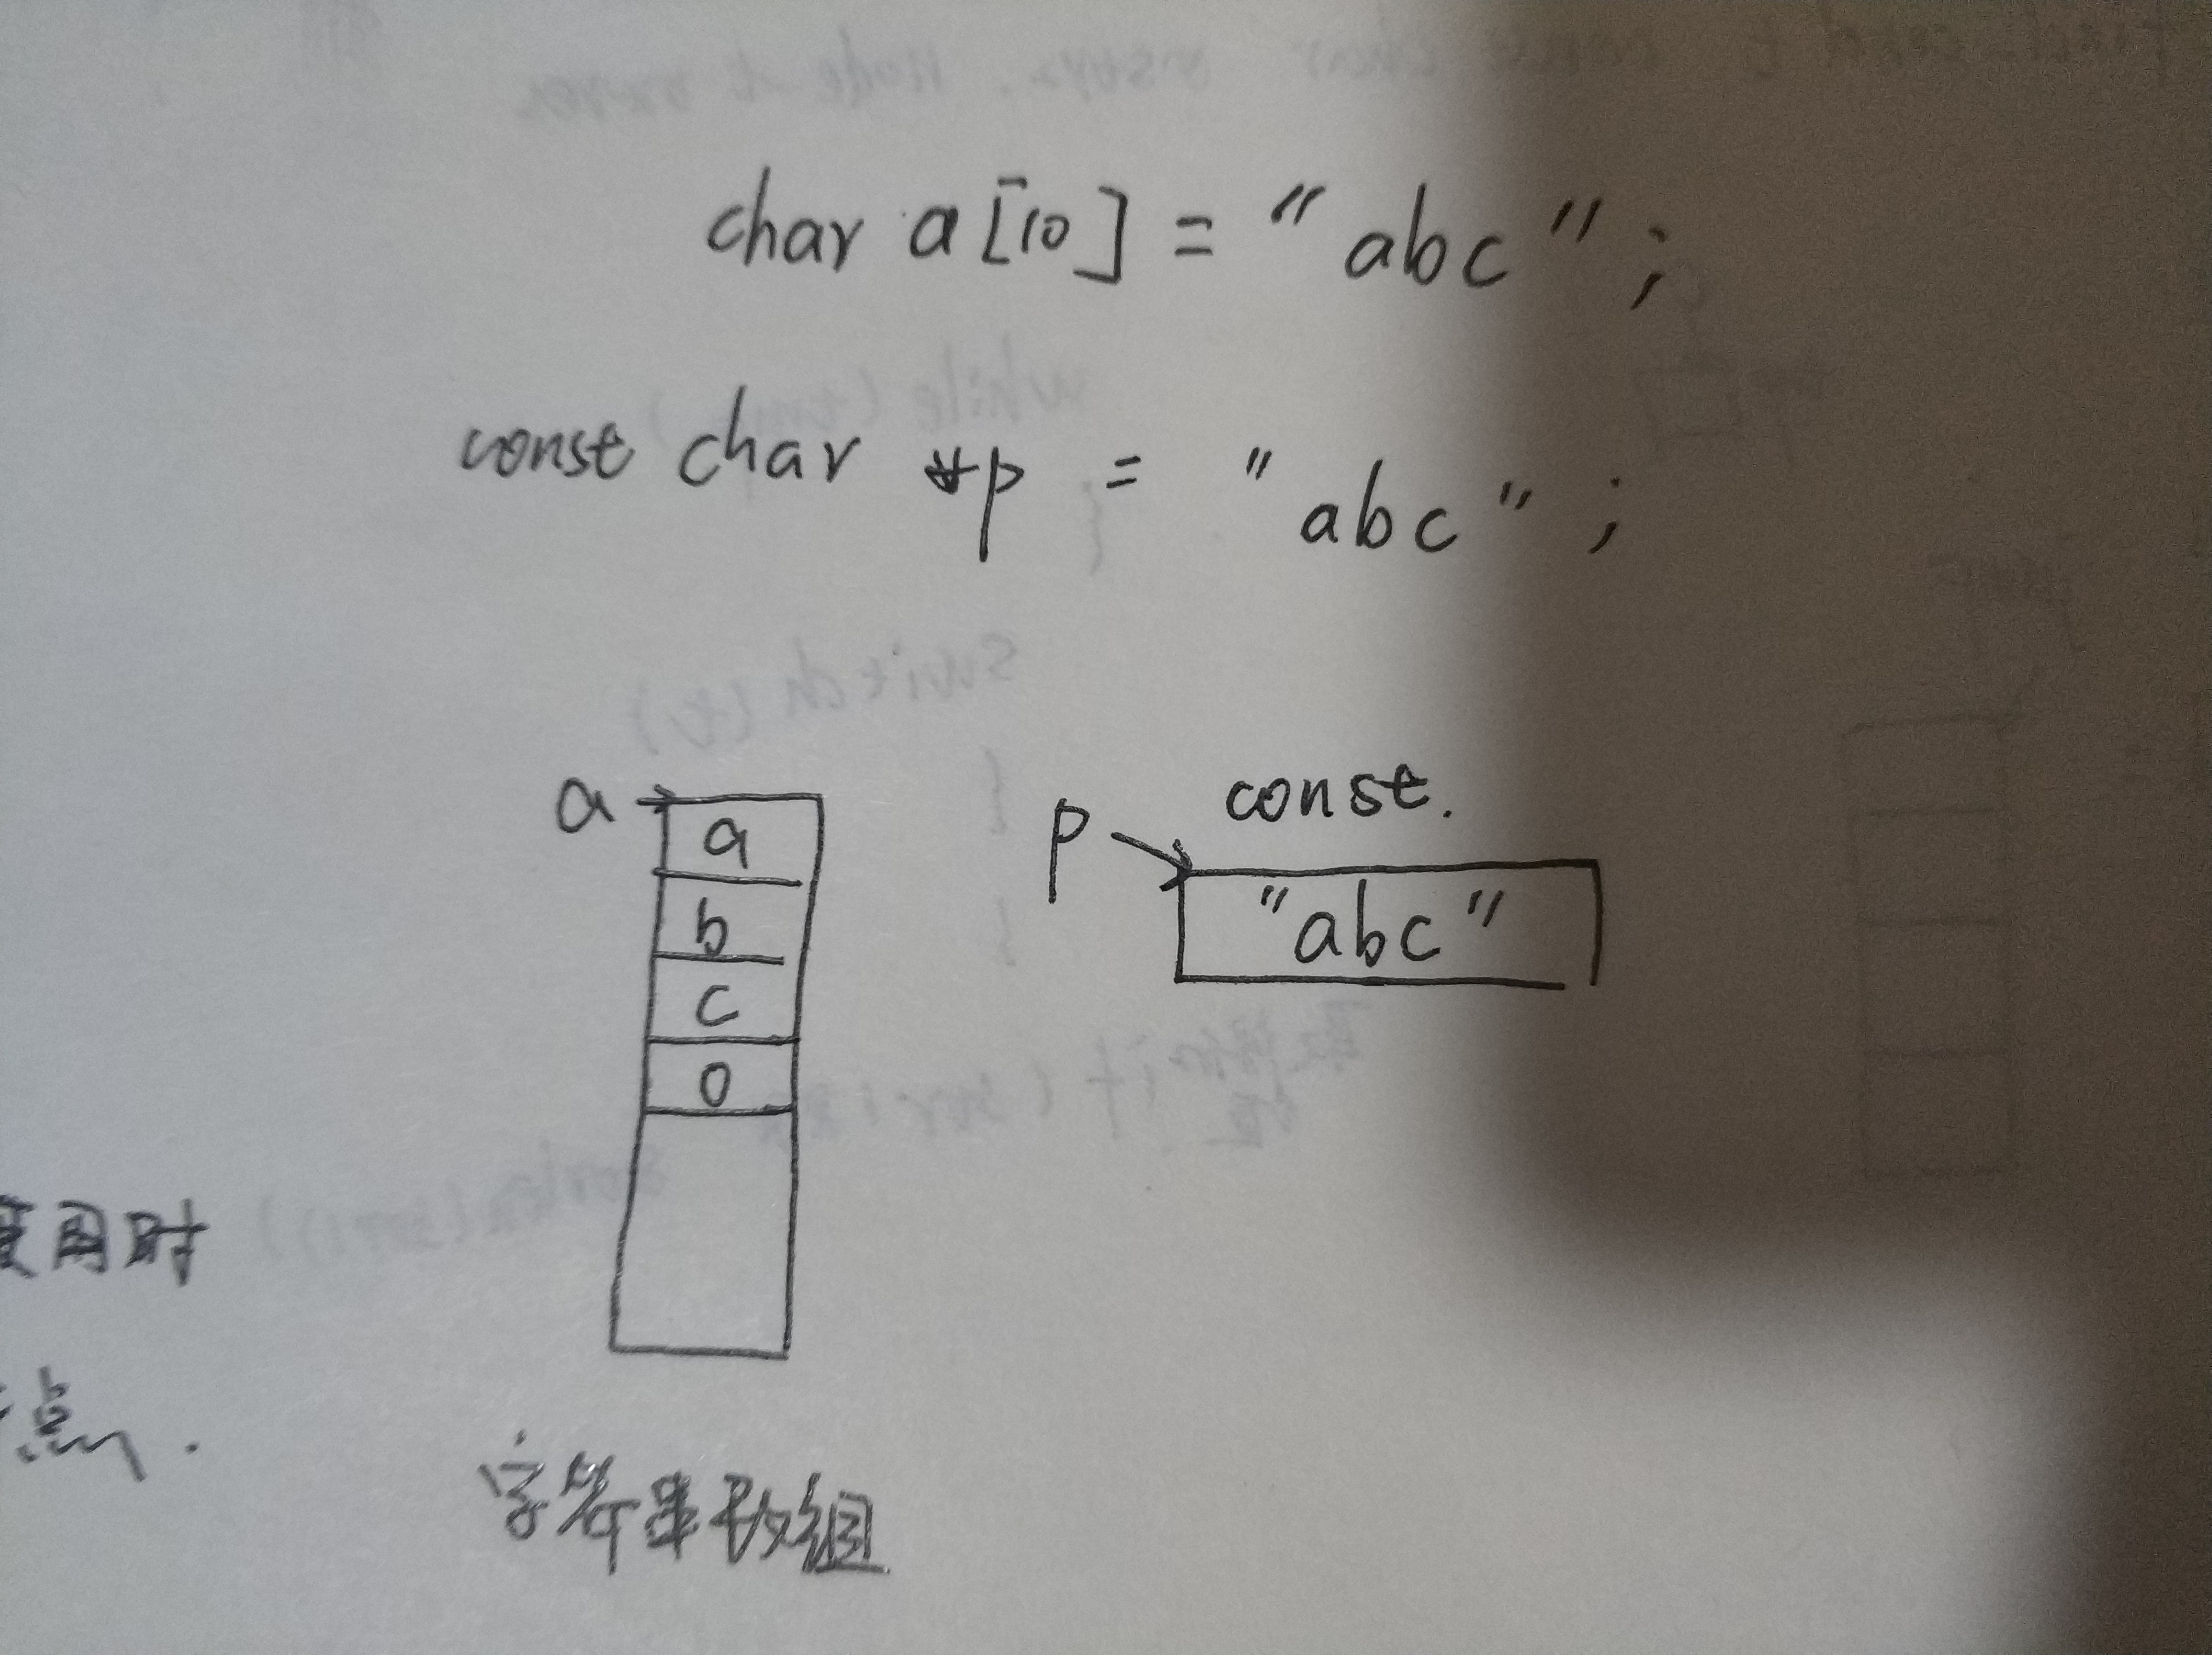 char a[10] = "abc";
const char *p = "abc";
a
a
b
c
0
p
const.
"abc"
用时
点.
字符串数组